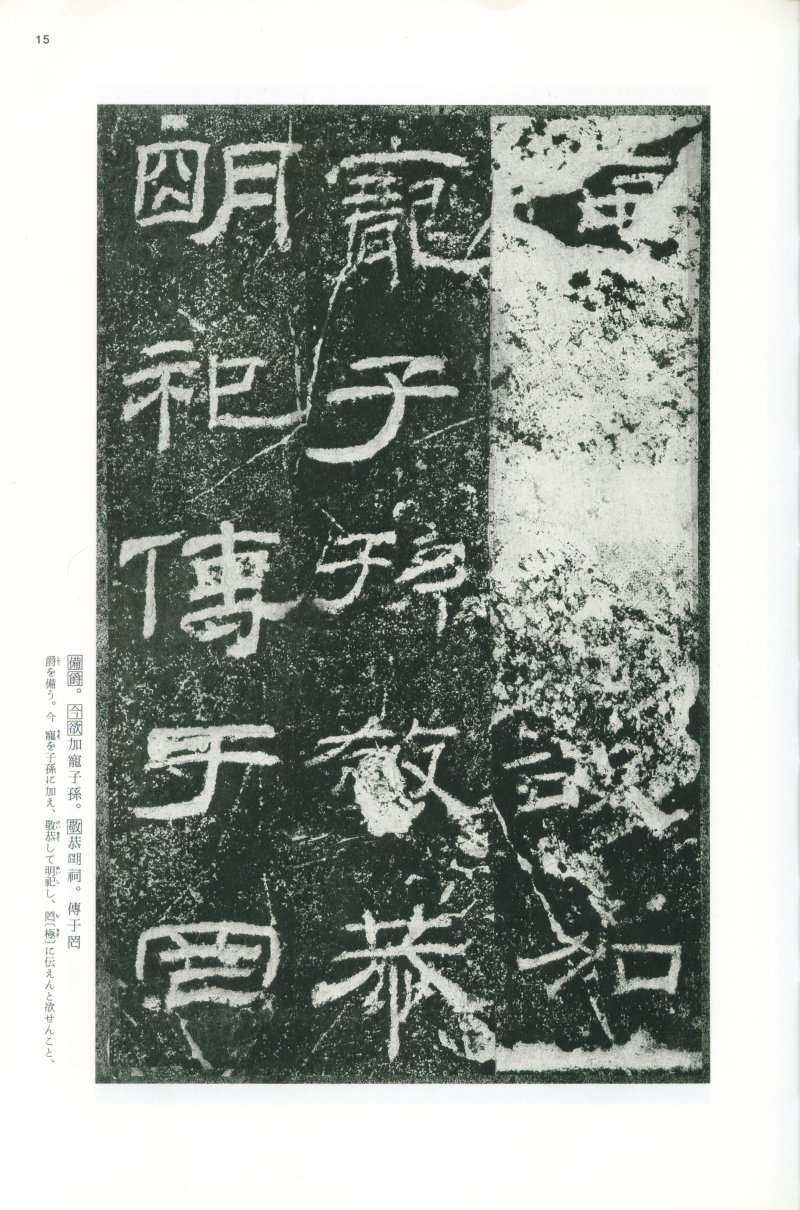 15
加
寵子孫敬恭
朙祀傳于罔
備爵。今欲加寵子孫。敬恭朙祠。傳于罔
爵を備う。今 寵を子孫に加え、敬恭して明祀し、罔〔極〕に伝えんと欲せんこと、